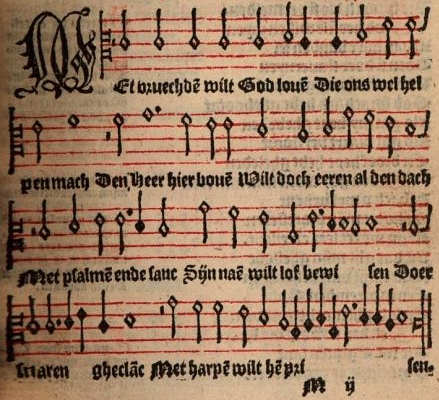 MEt vruechdē wilt God louē Die ons wel hel
pen mach Den Heer hier bouē Wilt doch eeren al den dach
Met psalmē ende sanc Sijn naē wilt lof bewi sen Doer
snaren gheclāc Met harpē wilt hē pri sen.
M ij